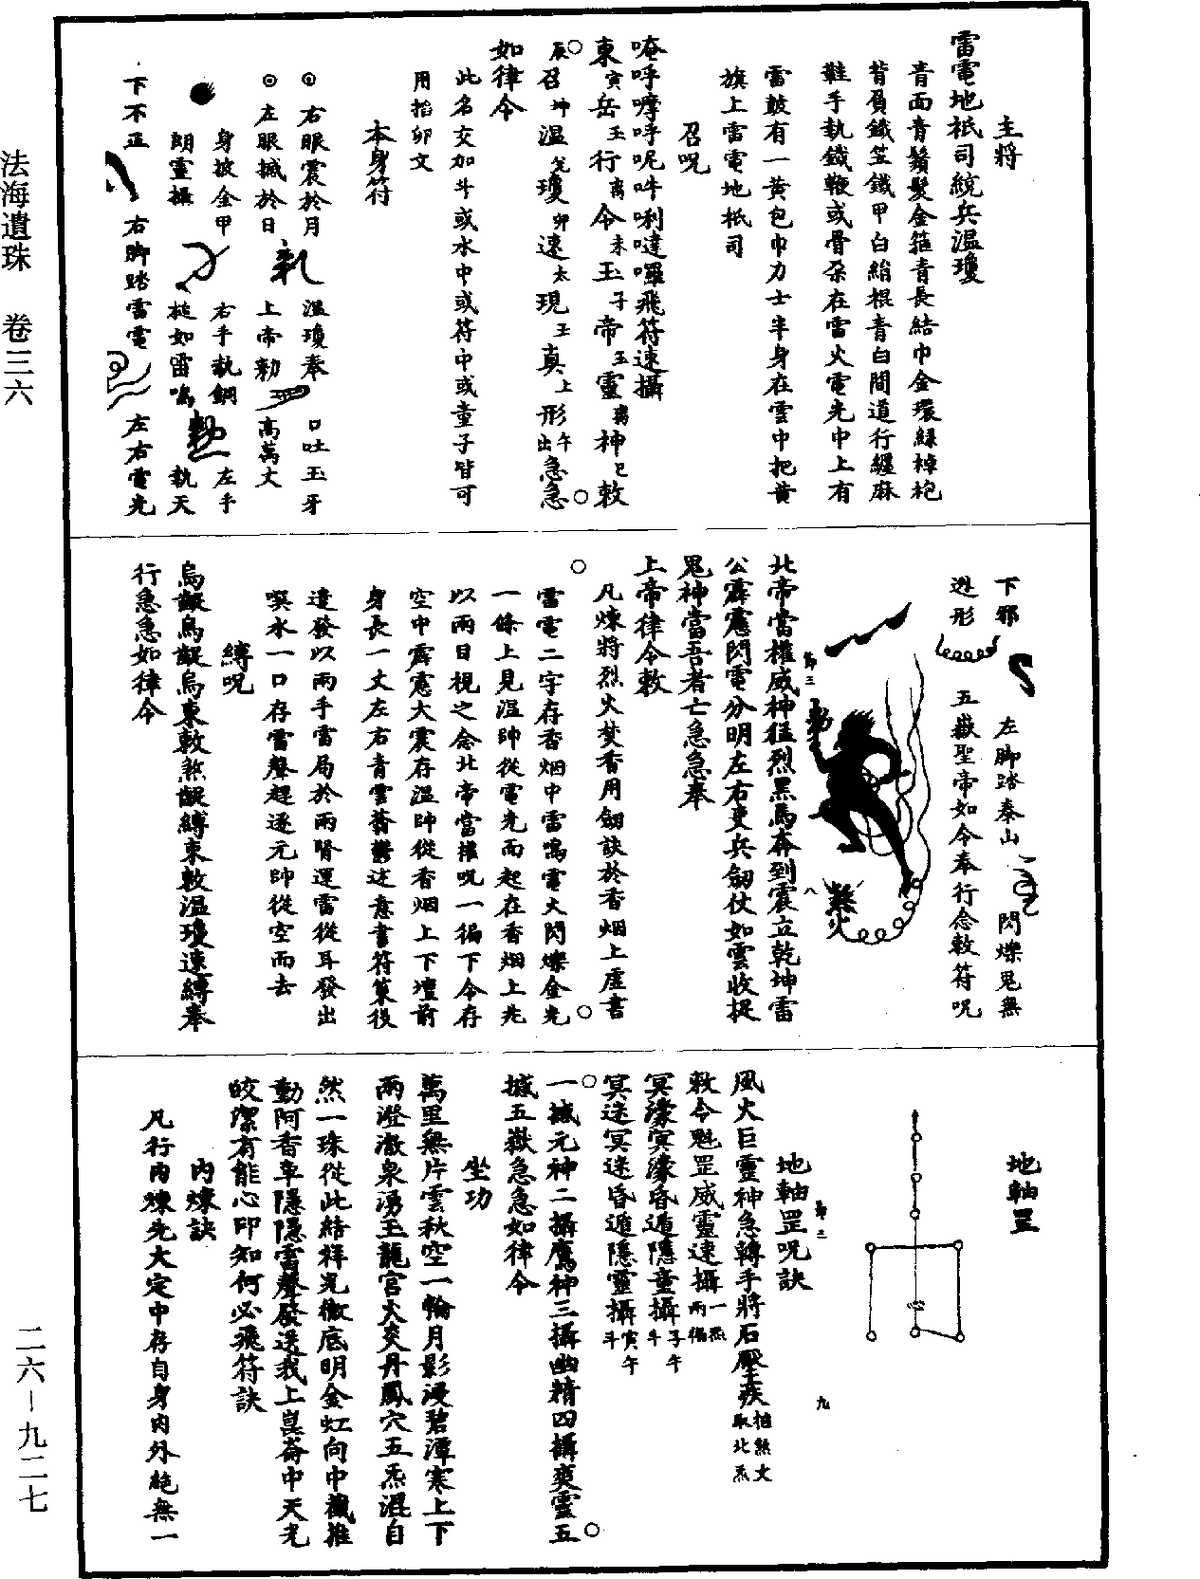 主將
雷電地祇司統兵温瓊
青面青鬚髮金箍青長結巾金環綠棹袍
背負鐵笠鐵甲白綃棍青白間道行纏麻
鞋手執鐵鞭或骨朵在雷火電光中上有
雷鼓有一黄包巾力士半身在雲中把黄
旗上雷電地祇司
召呪
唵呼嚤呼呢吽唎噠囉飛符速攝
東寅岳玉行离令未玉子帝玉靈离神巳敕
辰召坤温兌瓊卯速太現玉真上形午出急急
如律令
此名交加斗或水中或符中或童子皆可
用掐卯文
本身符
右眼震於月 温瓊奉 口吐玉牙
左眼撼於日 上帝勑 高萬丈
身披金甲 右手執鐧 左手
朗靈攝 槌如雷鳴 執天
下不正 右脚踏雷電 左右電光
下邪 左脚踏泰山 閃爍鬼無
逃形 五嶽聖帝如令奉行念敕符呪
第三 八
北帝當權威神猛烈黑馬奔到震立乾坤雷
公霹靂閃電分明左右吏兵劒仗如雲收捉
鬼神當吾者亡急急奉
上帝律令敕
凡煉將烈火焚香用劒訣於香烟上虛書
雷電二字存香烟中雷鳴電火閃爍金光
一條上見温帥從電光而起在香烟上先
以兩目視之念北帝當權呪一徧下令存
空中霹靂大震存温帥從香烟上下壇前
身長一丈左右青雲蓊鬱述意書符篆役
遣發以兩手雷局於兩腎運雷從耳發出
噀水一口存雷聲趕逐元帥從空而去
縛呪
烏齪烏齪烏東敕煞齪縛東敕温瓊速縛奉
行急急如律令
地軸罡
地軸罡呪訣
第三 九
風火巨靈神急轉手將石壓疾掐煞文取北炁
敕令魁罡威靈速攝一炁兩徧
冥濛冥濛昏遁隱童攝子午斗
冥迷冥迷昏遁隱靈攝寅午斗
一撼元神二攝鷹神三攝幽精四攝爽靈五
撼五嶽急急如律令
坐功
萬里無片雲秋空一輪月影浸碧潭寒上下
兩澄澈泉湧玉龍宮火炎丹鳳穴五炁混自
然一珠從此結祥光徹底明金虹向中掣推
動阿香車隱隱雷聲發送我上崑崙中天光
皎潔有能心印知何必飛符訣
内煉訣
凡行内煉先大定中存自身内外絶無一
法海遺珠 卷三六
二六—九二七